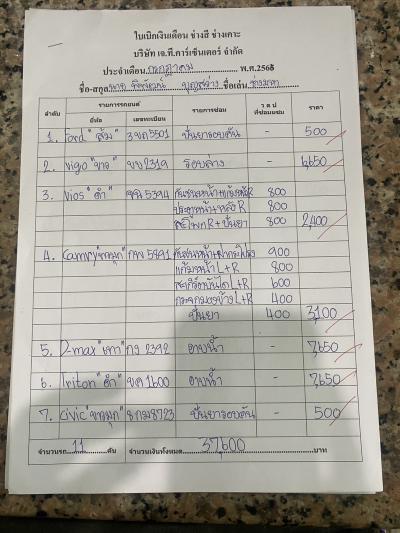 ใบเบิกเงินเดือน ช่างสี ช่างเคาะ
บริษัท เจ.ที.คาร์เซ็นเตอร์ จำกัด
ประจำเดือน กรกฎาคม พ.ศ.2568
ชื่อ-สกุล นาย บุญสว่าง ชื่อเล่น
ลำดับ รายการรถยนต์ รายการซ่อม ว ด ป ที่ซ่อมเสร็จ ราคา
ยี่ห้อ เลขทะเบียน
1. Ford "ส้ม" 3ขถ5501 ปั่นยารอบคัน - 500
2. Vigo "ขาว" 2319 รอบล่าง - 6,650
3. Vios "ดำ" 5394 กันชนหน้า+แก้มหน้าR 800
ประตูหน้า+หลังR 800
สะโพกR+ปั่นยา 800 2,400
4. Camry"ขาวมุก" กพ 5891 กันชนหน้า+ฝากระโปรง 900
แก้มหน้าL+R 800
สเกิร์ตบันไดL+R 600
กระจกมองข้างL+R 400
ปั่นยา 400 3,100
5. D-max "เทา" กง 2392 อาบน้ำ - 7,650
6. Triton "ดำ" ขค 1600 อาบน้ำ - 7,650
7. Civic "ขาวมุก" 8กม8723 ปั่นยารอบคัน - 500
จำนวนรถ 11 คัน จำนวนเงินทั้งหมด 37,600 บาท